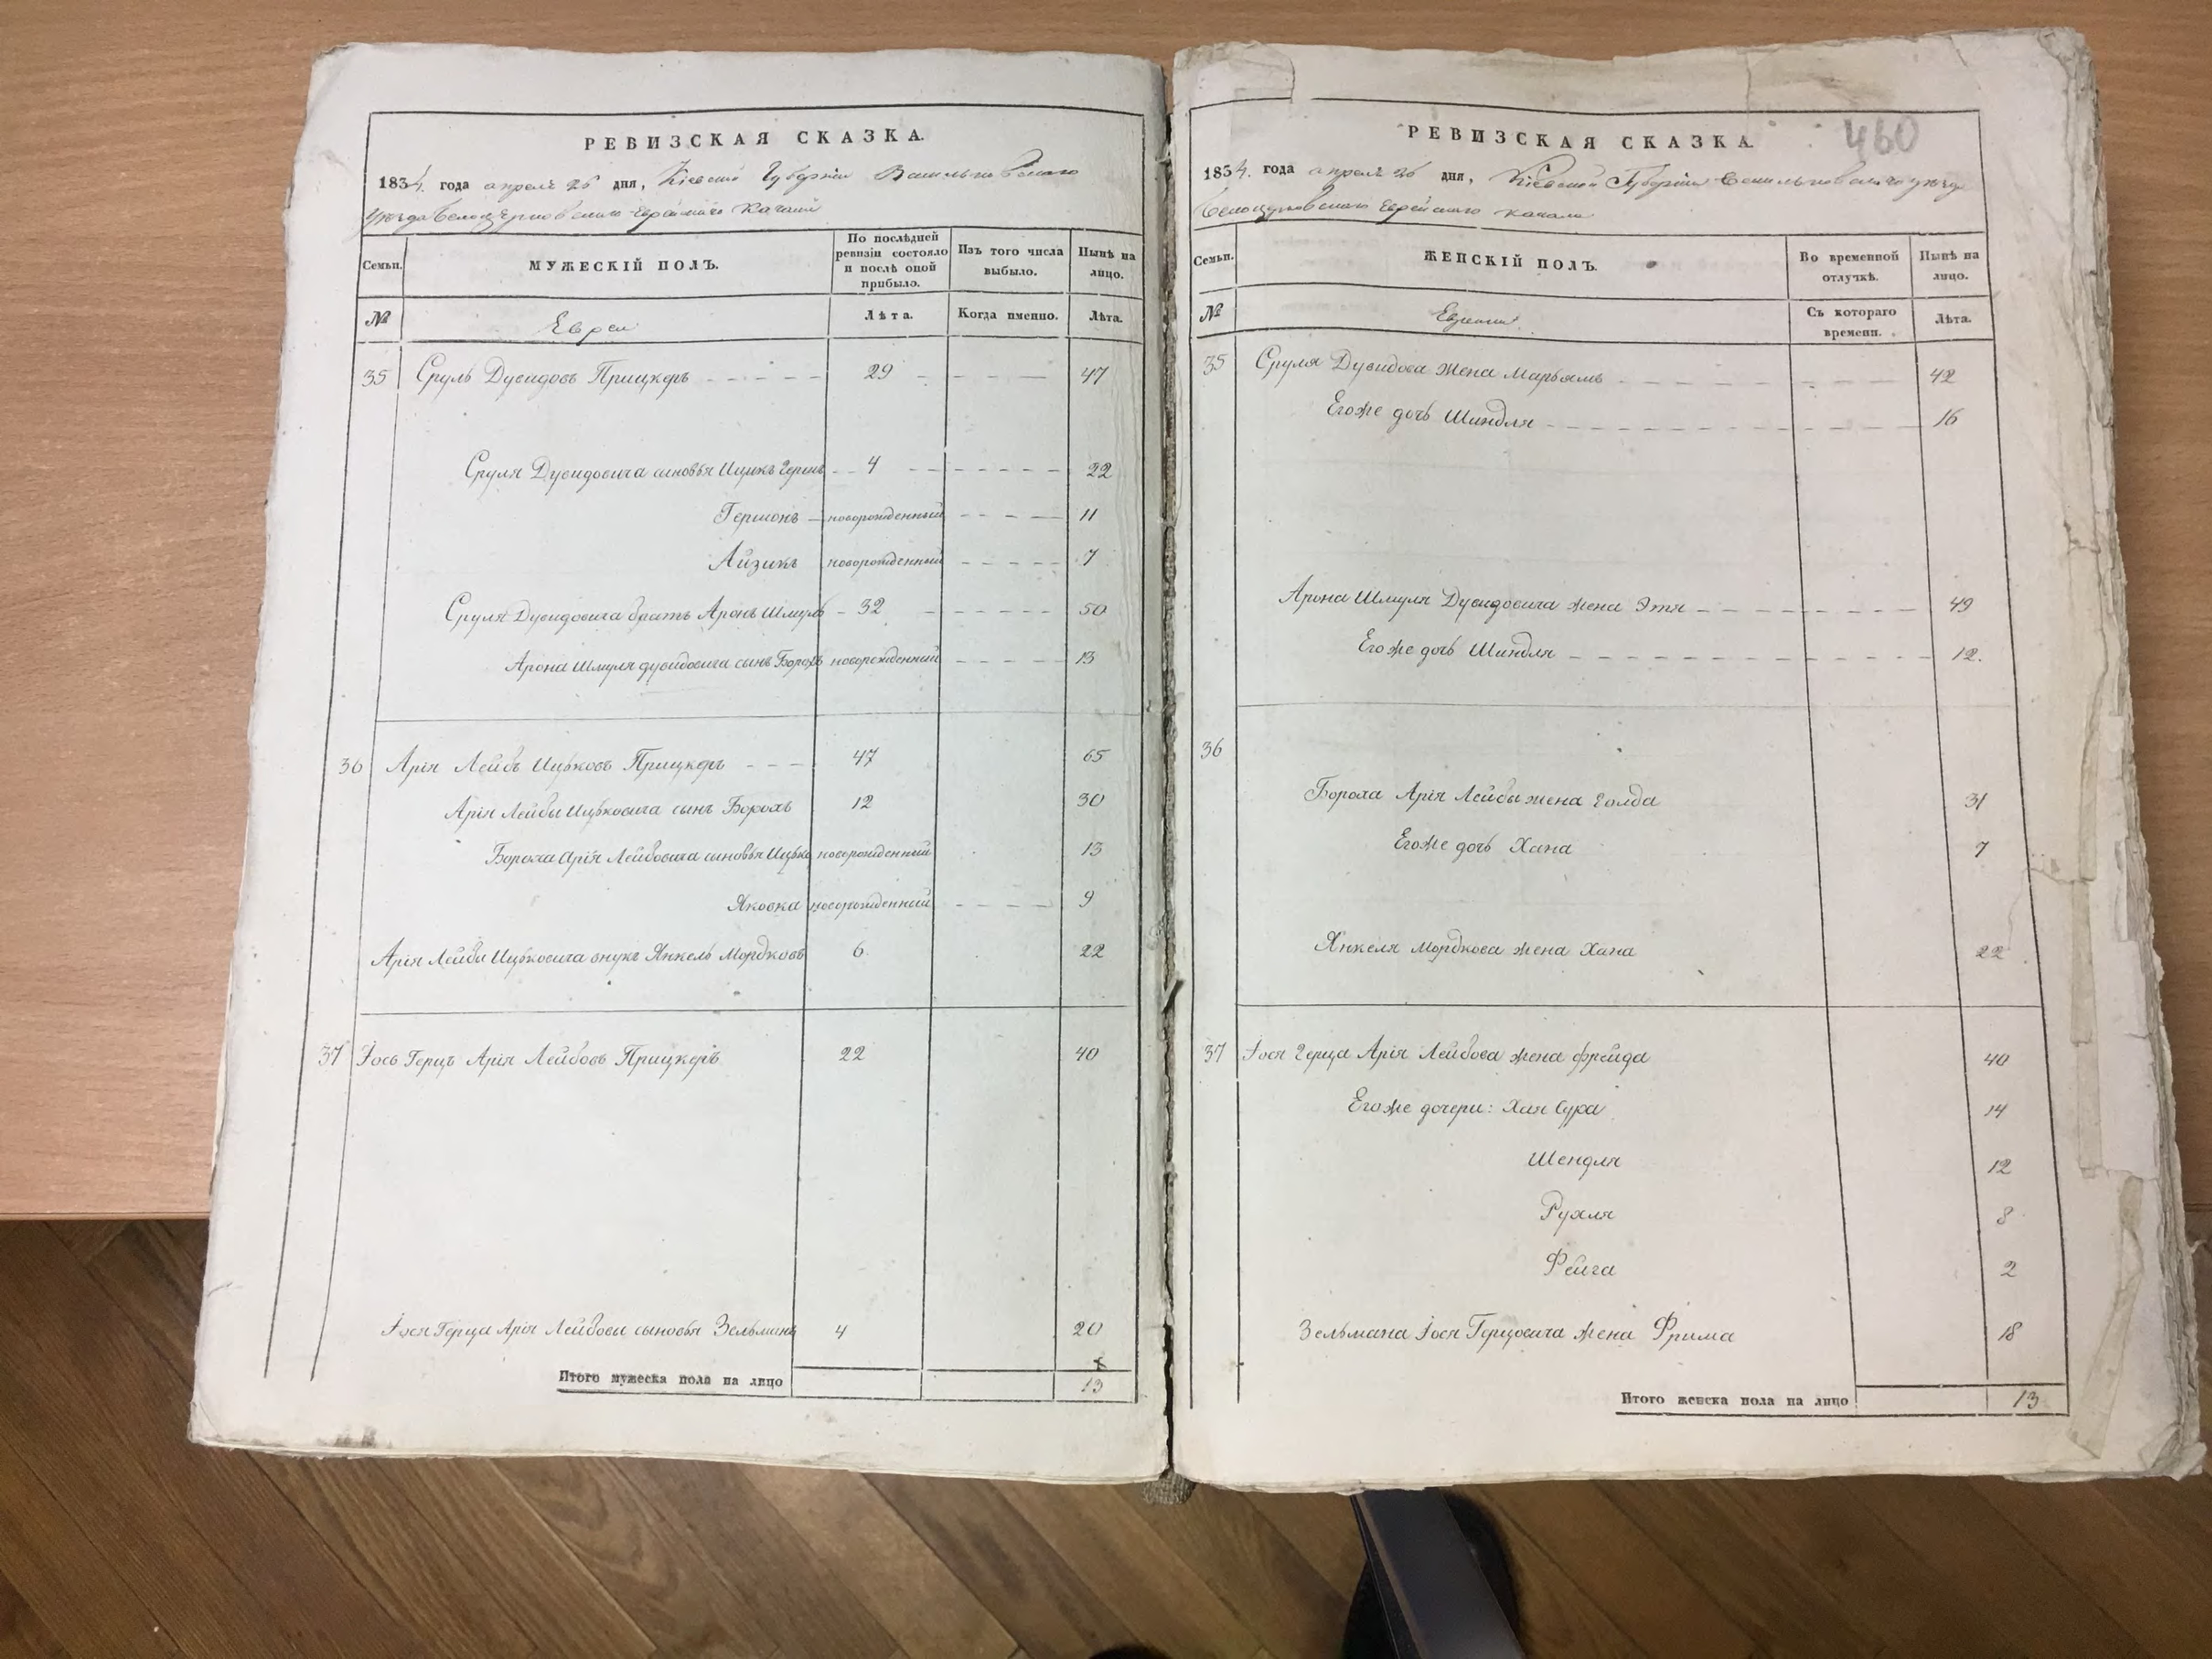 РЕВИЗСКАЯ СКАЗКА.
1834. года апреля 26 дня, Кіевской Губерніи Васильковскаго
уезда Белоцерковскаго Еврейскаго Кагала
Семьи.
МУЖЕСКІЙ ПОЛЪ.
По послѣдней ревизіи состояло и послѣ оной прибыло.
Изъ того числа выбыло.
Нынѣ на лицо.
№
Евреи
Лѣта.
Когда именно.
Лѣта.
35 Сруль Дувидовъ Прицкеръ 29 47
Сруля Дувидовича сыновья Ицикъ Герш 4 22
Гершонъ новорожденный 11
Айзикъ новорожденный 7
Сруля Дувидовича братъ Аронъ Шмуль 32 50
Арона Шмуля Дувидовича сынъ Борохъ новорожденный 13
36 Арія Лейбъ Ицьковъ Прицкеръ 47 65
Арія Лейбы Ицьковича сынъ Борохъ 12 30
Бороха Арія Лейбовича сыновья Ицько новорожденный 13
Яковка новорожденный 9
Арія Лейбы Ицьковича внукъ Янкель Мордковъ 6 22
37 Іось Герцъ Арія Лейбовъ Прицкеръ 22 40
Іося Герца Арія Лейбова сыновья Зельманъ 4 20
Итого мужеска пола на лицо 13
РЕВИЗСКАЯ СКАЗКА.
460
1834. года апреля 26 дня, Кіевской Губерніи Васильковскаго уезда
Белоцерковскаго Еврейскаго кагала
Семьи.
ЖЕНСКІЙ ПОЛЪ.
Во временной отлучкѣ.
Нынѣ на лицо.
№
Еврейки
Съ котораго времени.
Лѣта.
35 Сруля Дувидова жена Марьямъ 42
Егоже дочь Шиндля 16
Арона Шмуля Дувидовича жена Этя 49
Егоже дочь Шиндля 12.
36
Бороха Арія Лейбы жена Голда 31
Егоже дочь Хана 7
Янкеля Мордкова жена Хана 22
37 Іося Герца Арія Лейбова жена Фрейда 40
Егоже дочери: Хая Сура 14
Шендля 12
Рухля 8
Фейга 2
Зельмана Іося Герцовича жена Фрима 18
Итого женска пола на лицо 13